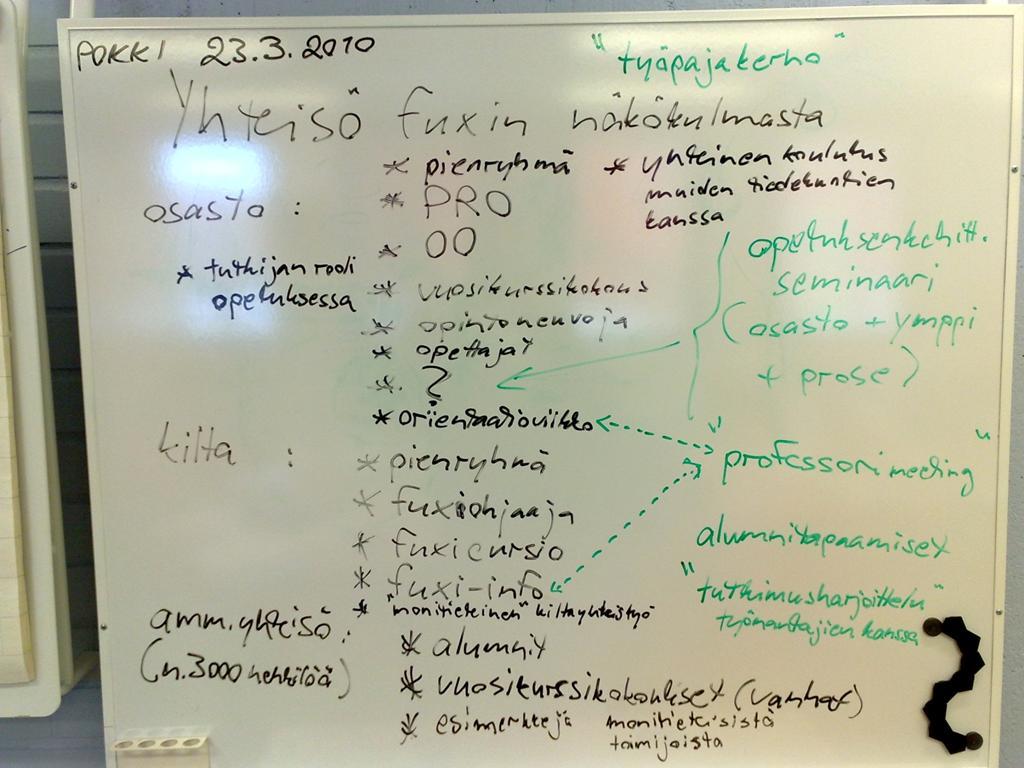 POKKI 23.3.2010
"työpajakerho"
Yhteisö fuxin näkökulmasta
osasto :
* pienryhmä
* PRO
* OO
* yhteinen koulutus
muiden tiedekuntien
kanssa
* tutkijan rooli
opetuksessa
* vuosikurssikokous
* opintoneuvoja
* opettajat
* ?
* orientaatioviikko
opetuksenkehitt.
seminaari
(osasto + ymppi
+ prose)
kilta :
* pienryhmä
* fuxiohjaaja
* fuxicursio
* fuxi-info
* "monitieteinen" kiltayhteistyö
"professori meeting"
alumnitapaamiset
"tutkimusharjoittelu"
työnantajien kanssa
amm.yhteisö :
(n.3000 henkilöä)
* alumnit
* vuosikurssikokoukset (vanhat)
* esimerkkejä monitieteisistä
toimijoista